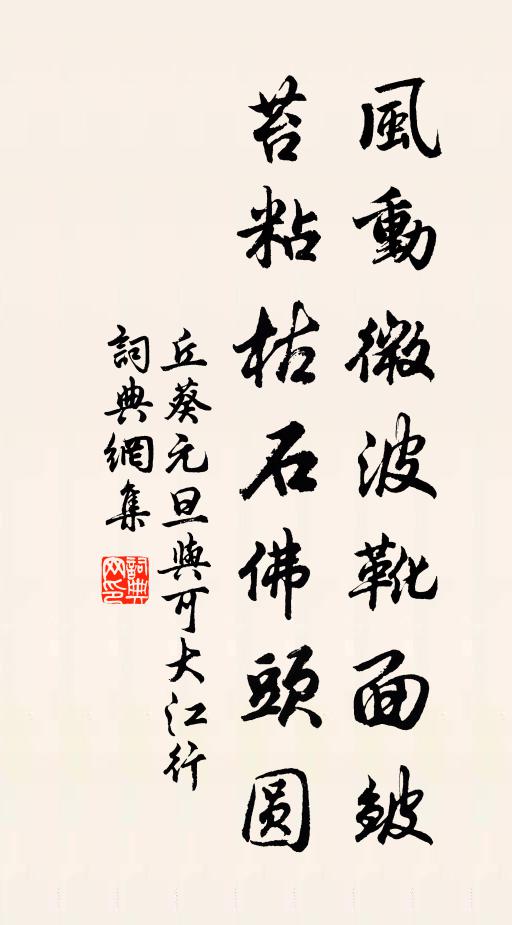 風動微波靴面皺
苔粘枯石佛頭圆
丘葵元旦與可大江行
詞典網集
詞典网印